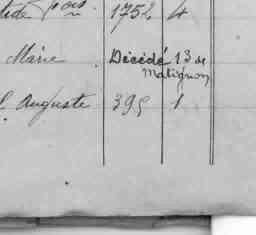 tide 1752 4
Marie Décédé 13 de
Matignon
Auguste 395 1